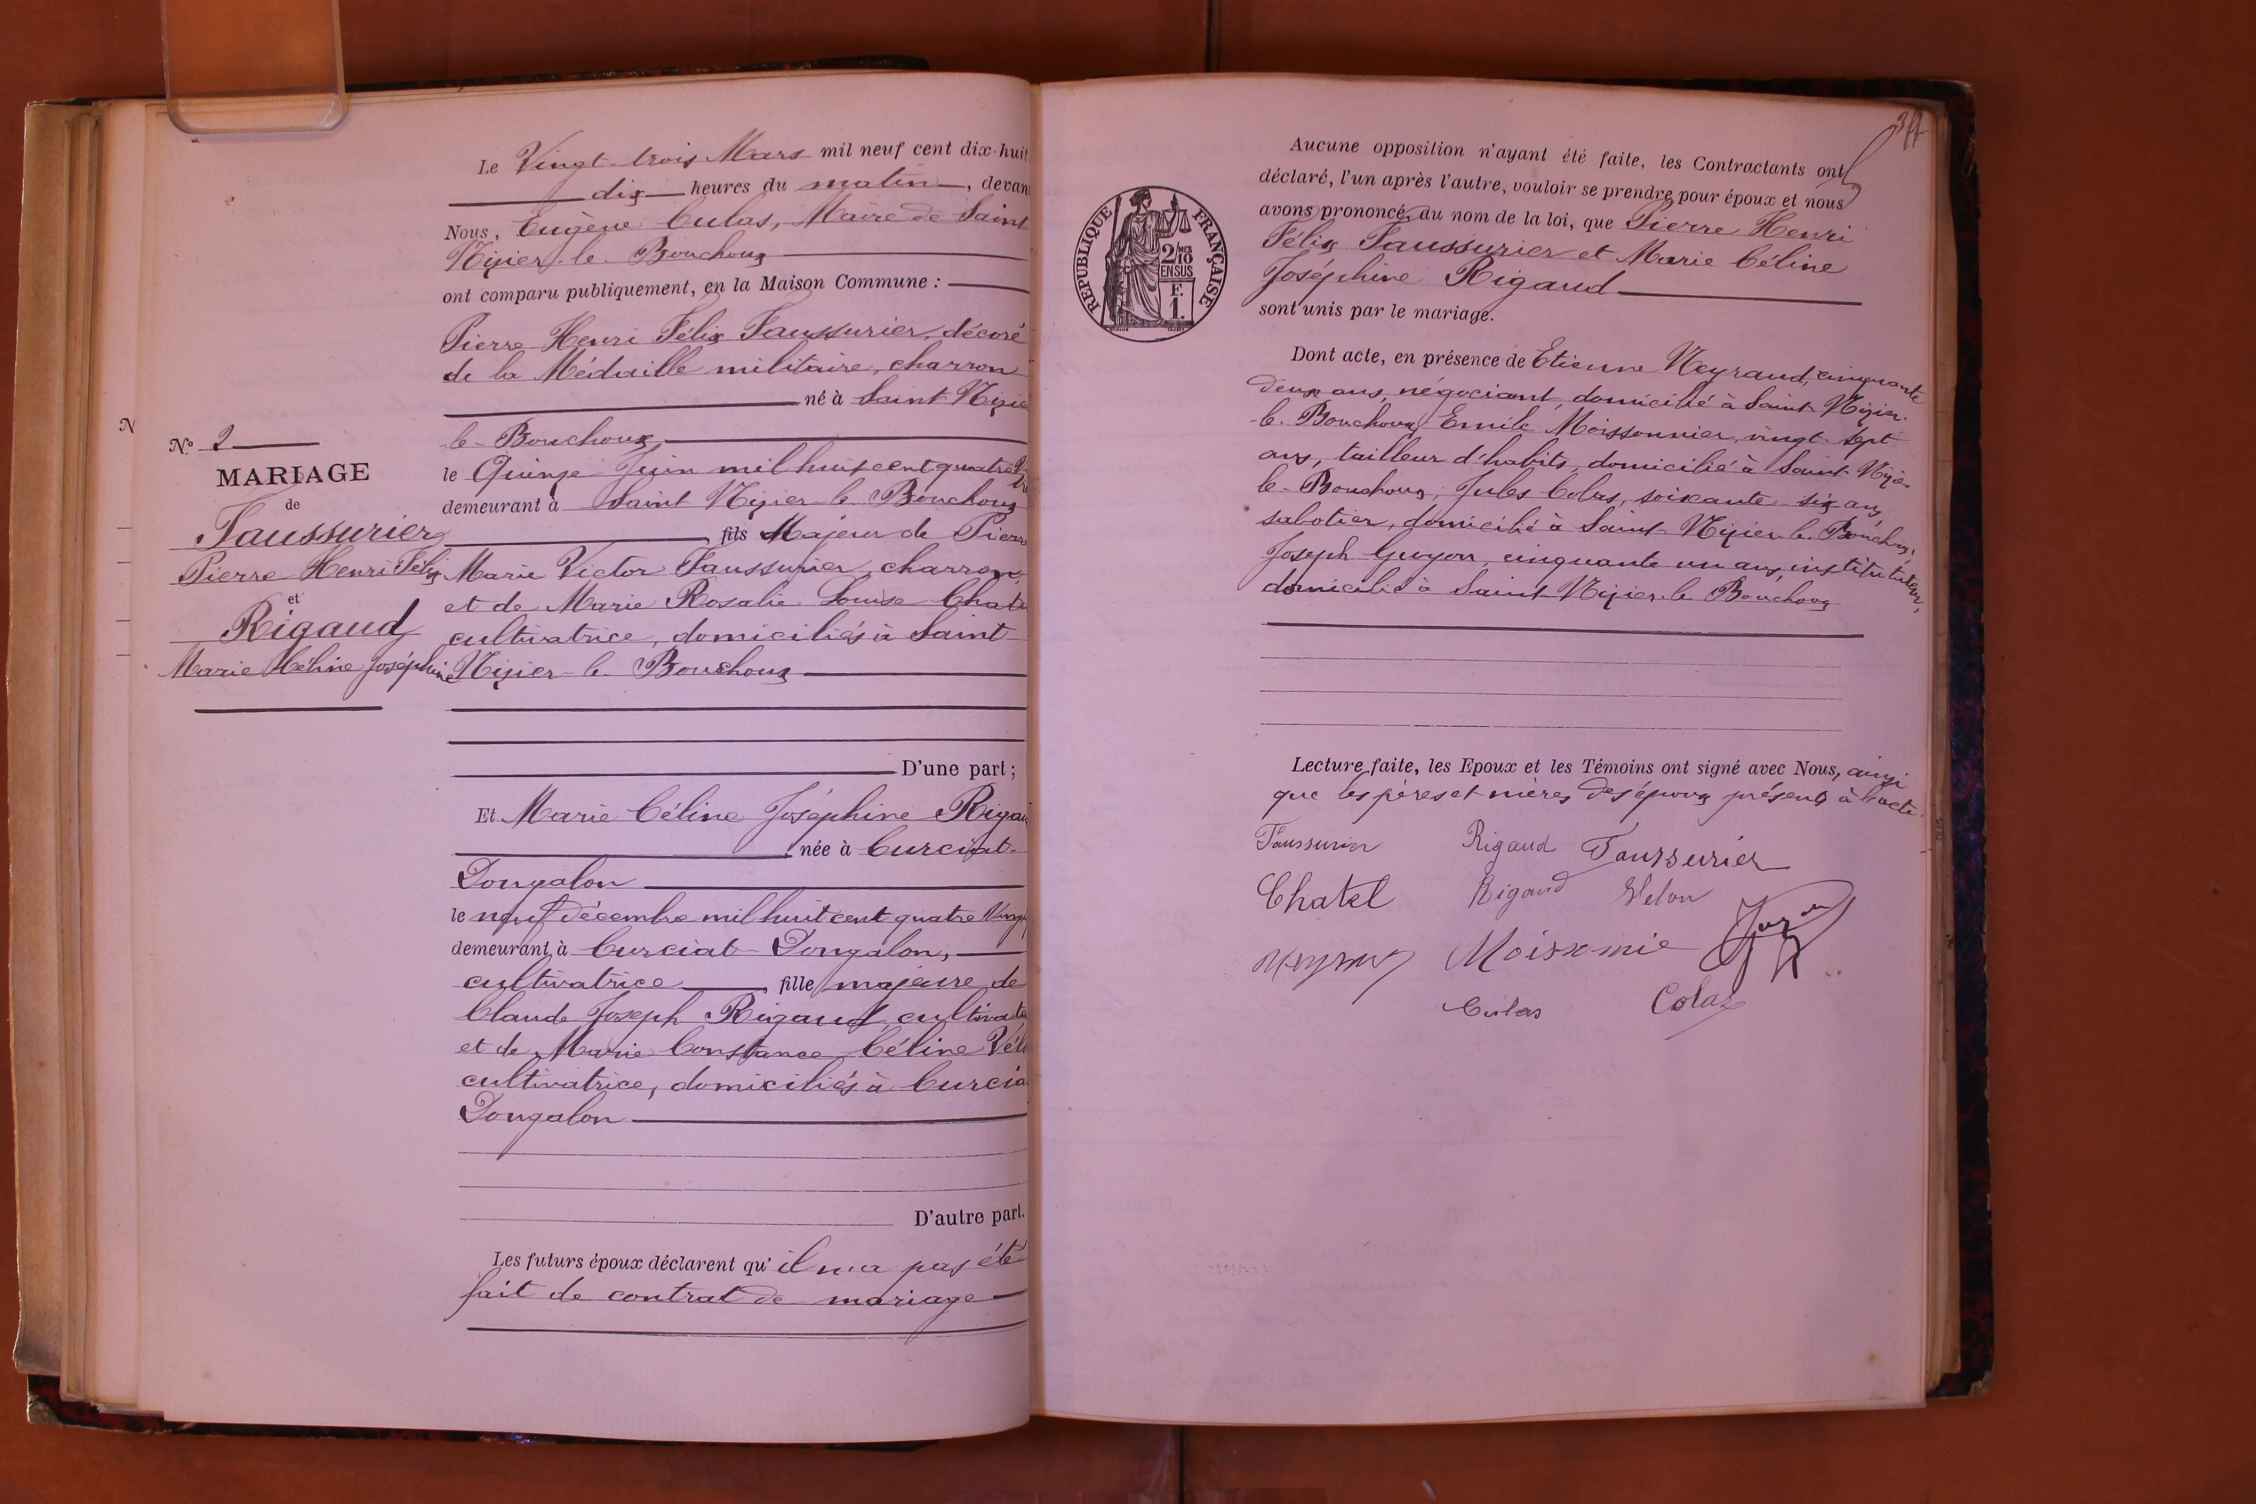 N
N° 2
MARIAGE
de
Faussurier
Pierre Henri Félix
et
Rigaud
Marie Céline Joséphine
Le Vingt trois Mars mil neuf cent dix-huit
dix heures du matin, devan
Nous, Eugène Culas, Maire de Saint
Nizier-le-Bouchoux
ont comparu publiquement, en la Maison Commune :
Pierre Henri Félix Faussurier, décoré
de la Médaille militaire, charron
né à Saint Nizie
le-Bouchoux,
le Quinze Juin mil huit cent quatre
demeurant à Saint Nizier-le-Bouchoux
fils Majeur de Pierre
Marie Victor Faussurier, charron,
et de Marie Rosalie Louise Chate
cultivatrice, domiciliés à Saint
Nizier-le-Bouchoux
D'une part ;
Et Marie Céline Joséphine Rigau
née à Curciat-
Dongalon
le neuf décembre mil huit cent quatre Vingt
demeurant à Curciat-Dongalon,
cultivatrice, fille majeure de
Claude Joseph Rigaud, cultivate
et de Marie Constance Céline Vél
cultivatrice, domiciliés à Curcia
Dongalon
D'autre part.
Les futurs époux déclarent qu'il n'a pas été
fait de contrat de mariage
RÉPUBLIQUE FRANÇAISE
2/10
EN SUS
F.
1.
Aucune opposition n'ayant été faite, les Contractants ont
déclaré, l'un après l'autre, vouloir se prendre pour époux et nous
avons prononcé, du nom de la loi, que Pierre Henri
Félix Faussurier et Marie Céline
Joséphine Rigaud
sont unis par le mariage.
Dont acte, en présence de Etienne Neyraud, cinquante
deux ans, négociant, domicilié à Saint-Nizier-
le-Bouchoux, Emile Moissonnier, vingt-sept
ans, tailleur d'habits, domicilié à Saint-Nizier
le-Bouchoux, Jules Colas, soixante-six ans
sabotier, domicilié à Saint-Nizier-le-Bouchoux,
Joseph Guyon, cinquante un ans, instituteur,
domicilié à Saint-Nizier-le-Bouchoux
Lecture faite, les Epoux et les Témoins ont signé avec Nous, ainsi
que les pères et mères des époux présents à l'acte.
Faussurier Rigaud Faussurier
Chatel Rigaud Velon
Neyraud Moissonnie
Culas Colas